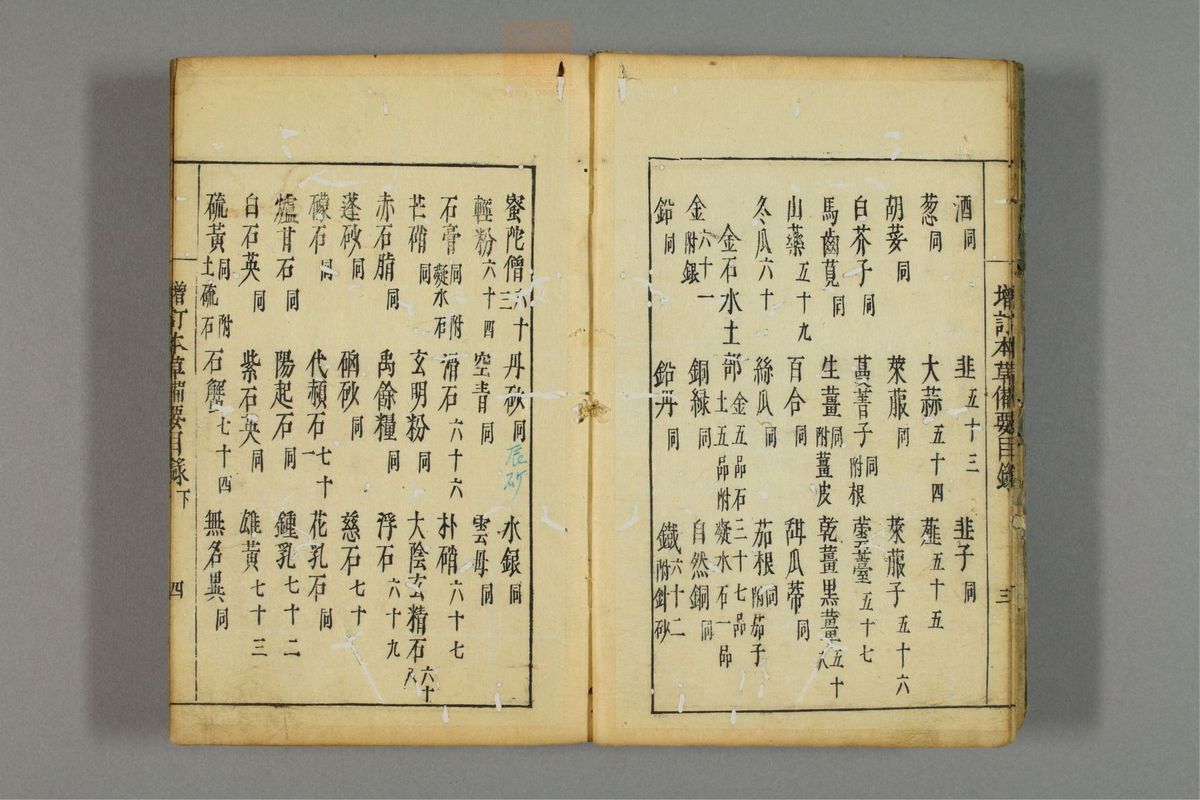 酒同 韭五十三 韭子同
葱同 大蒜五十四 薤五十五
胡荽同 萊菔同 萊菔子五十六
白芥子同 蔓菁子同附根 蕓薹五十七
馬齒莧同 生薑同附薑皮 乾薑黑薑五十八
山藥五十九 百合同 甜瓜蒂同
冬瓜六十 絲瓜同 茄根同附茄子
金石水土部金五品石三十七品土五品附凝水石一品
金六十一附銀 銅綠同 自然銅同
鉛同 鉛丹同 鐵六十二附針砂
增訂本草備要目錄 三
蜜陀僧六十三 丹砂同 辰砂 水銀同
輕粉六十四 空青同 雲母同
石膏同附凝水石 滑石六十六 朴硝六十七
芒硝同 玄明粉同 大陰玄精石六十八
赤石脂同 禹餘糧同 浮石六十九
蓬砂同 硇砂同 慈石七十
礞石同 代赭石七十一 花乳石同
爐甘石同 陽起石同 鍾乳七十二
白石英同 紫石英同 雄黃七十三
硫黃同附土硫石 石蟹七十四 無名異同
增訂本草備要目錄 下 四